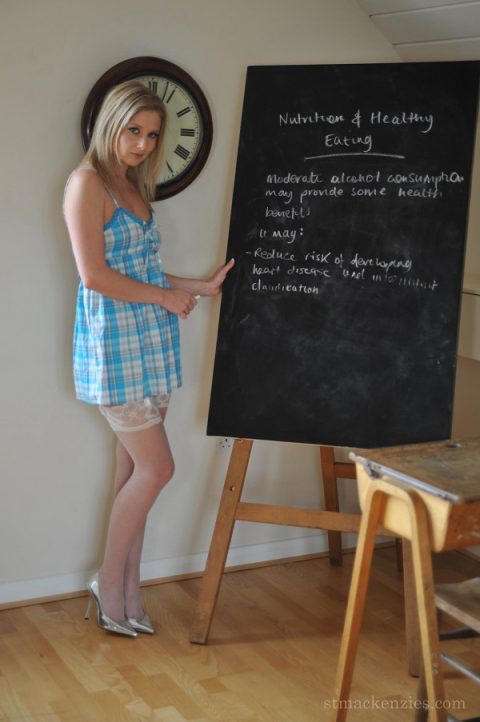 Nutrition & Healthy
Eating
Moderate alcohol consumption
may provide some health
benefits
It may:
- Reduce risk of developing
heart disease and intermittent
claudication
stmackenzies.com